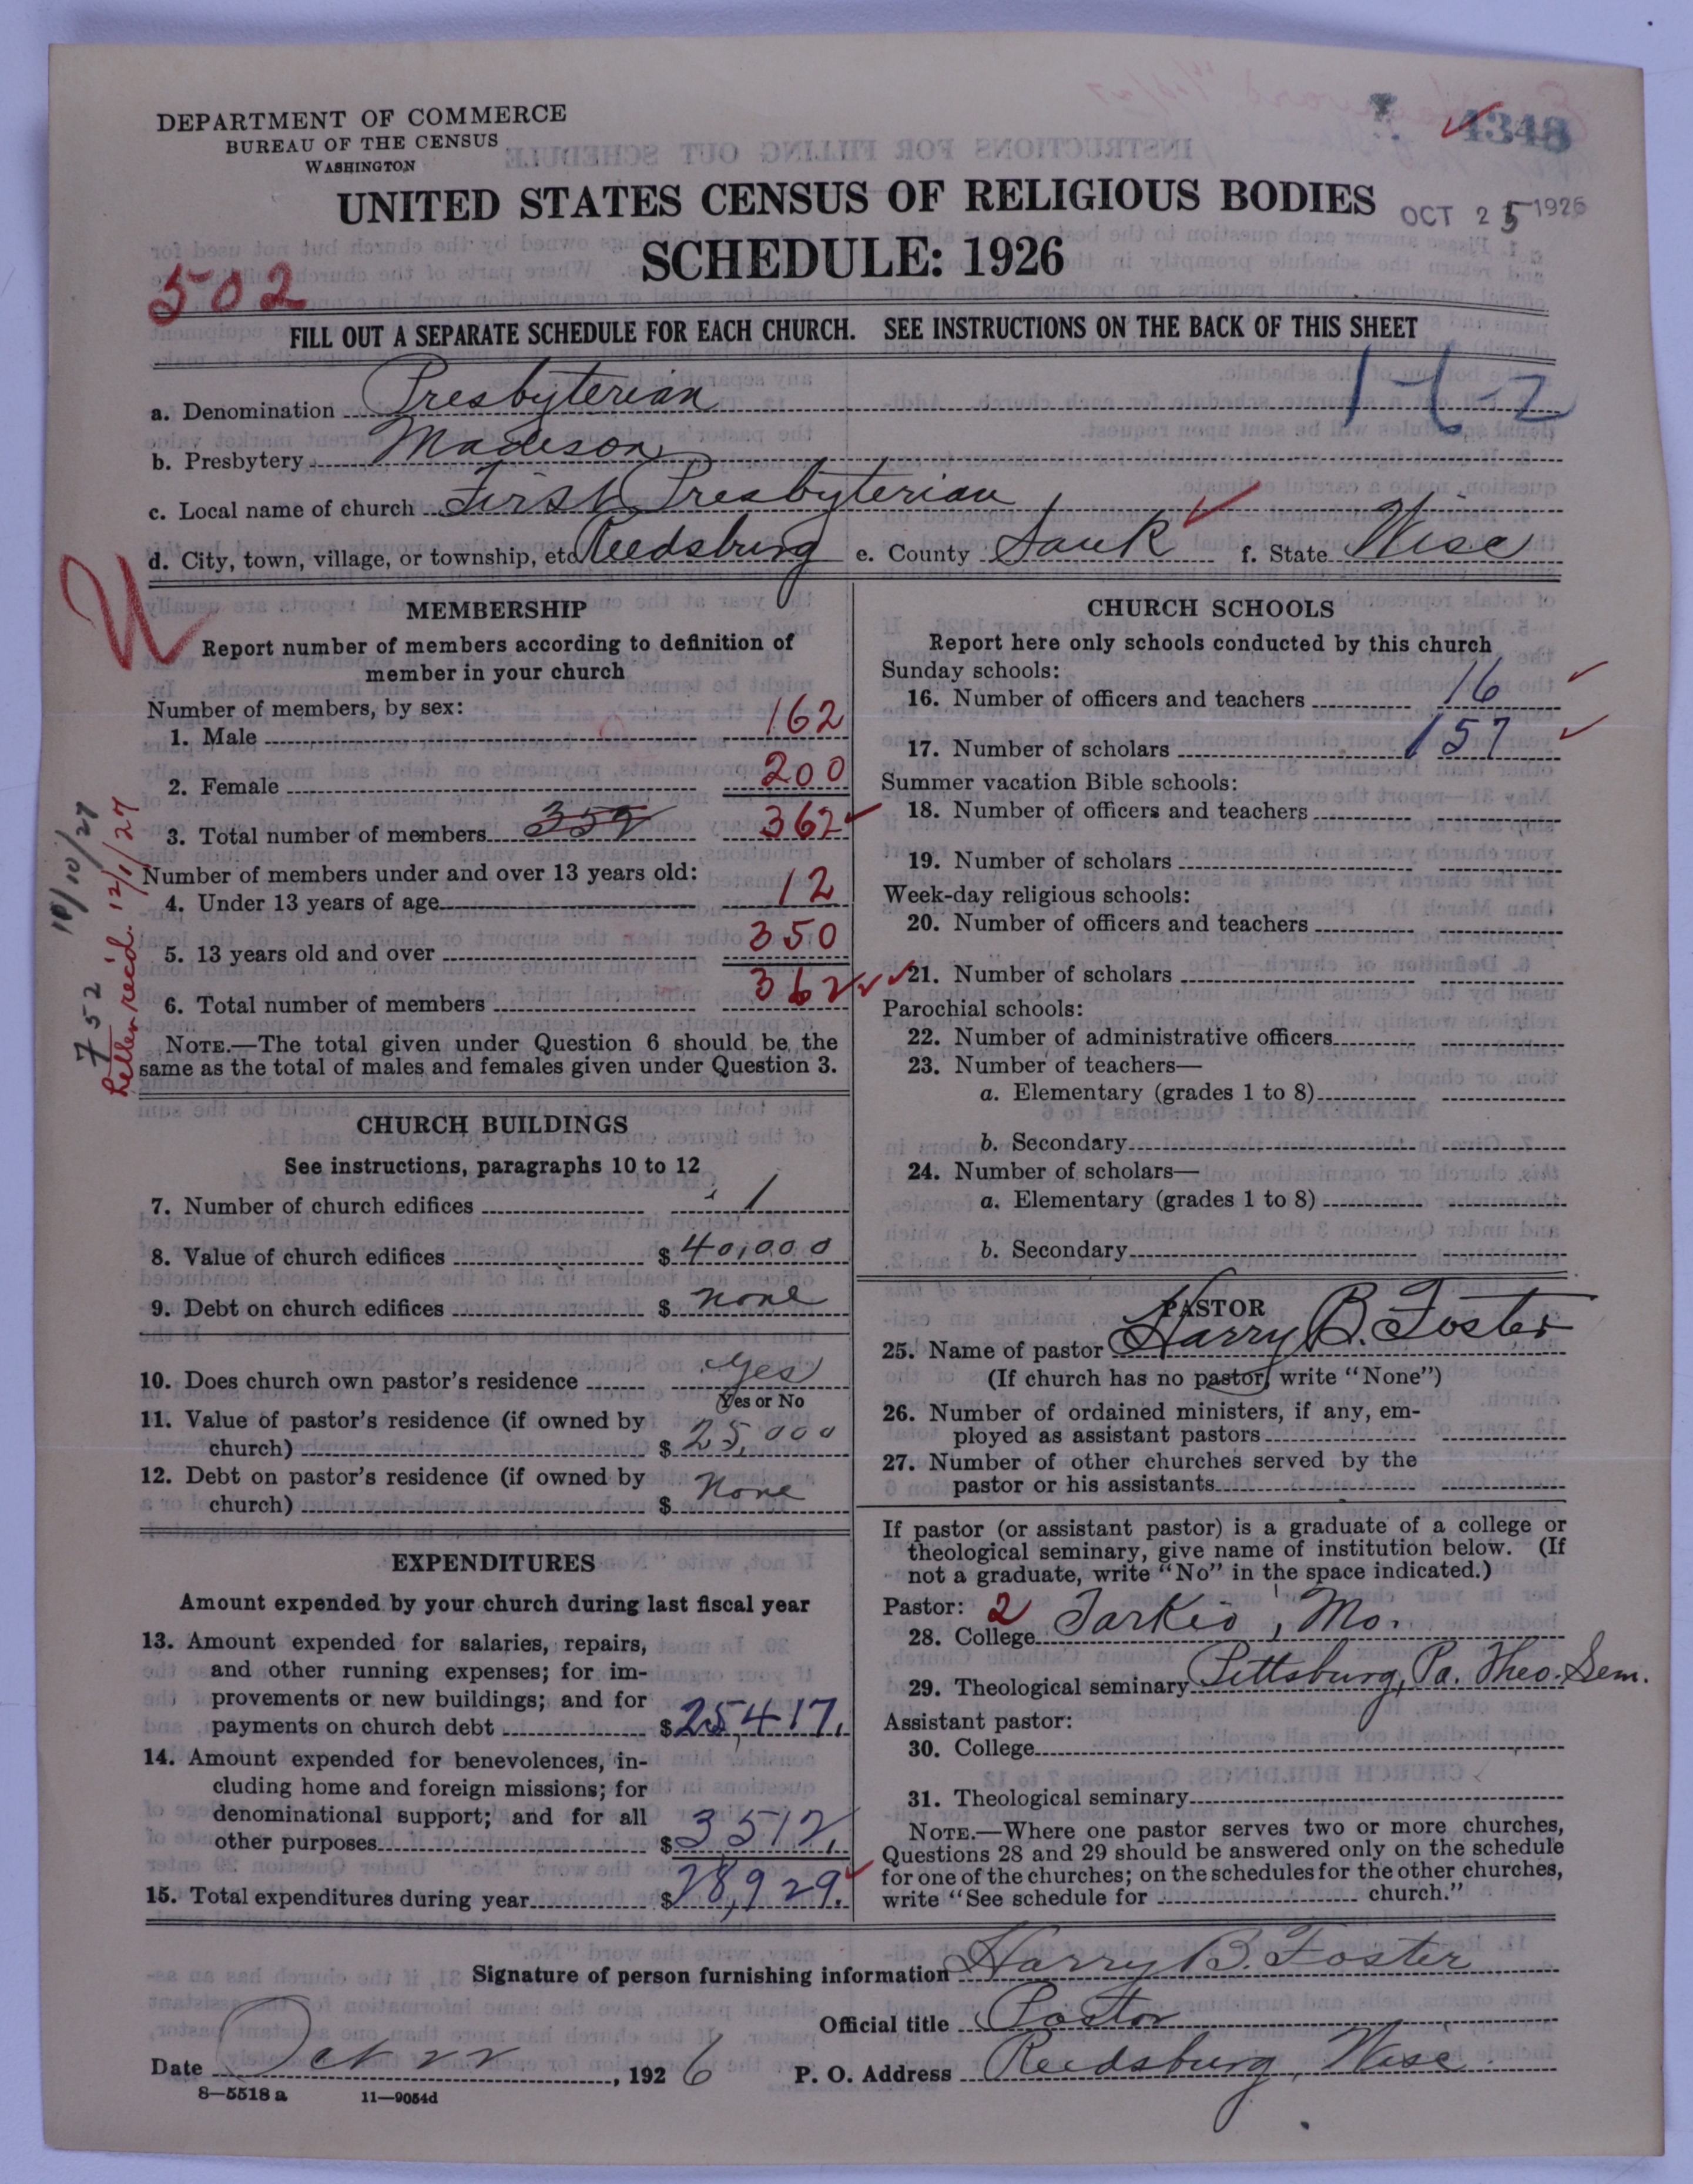 DEPARTMENT OF COMMERCE
BUREAU OF THE CENSUS
WASHINGTON
4348
UNITED STATES CENSUS OF RELIGIOUS BODIES
OCT 25 1926
SCHEDULE: 1926
502
FILL OUT A SEPARATE SCHEDULE FOR EACH CHURCH. SEE INSTRUCTIONS ON THE BACK OF THIS SHEET
a. Denomination Presbyterian
b. Presbytery Madison
c. Local name of church First Presbyterian
d. City, town, village, or township, etc Reedsburg e. County Sauk f. State Wisc
MEMBERSHIP
Report number of members according to definition of
member in your church
Number of members, by sex:
1. Male 162
2. Female 200
3. Total number of members 359 362
Number of members under and over 13 years old:
4. Under 13 years of age 12
5. 13 years old and over 350
6. Total number of members 362
NOTE.—The total given under Question 6 should be the
same as the total of males and females given under Question 3.
752
Letter rec'd. 12/1/27
CHURCH BUILDINGS
See instructions, paragraphs 10 to 12
7. Number of church edifices 1
8. Value of church edifices $ 40,000
9. Debt on church edifices $ none
10. Does church own pastor's residence Yes
Yes or No
11. Value of pastor's residence (if owned by
church) $ 25,000
12. Debt on pastor's residence (if owned by
church) $ None
EXPENDITURES
Amount expended by your church during last fiscal year
13. Amount expended for salaries, repairs,
and other running expenses; for im-
provements or new buildings; and for
payments on church debt $ 25,417.
14. Amount expended for benevolences, in-
cluding home and foreign missions; for
denominational support; and for all
other purposes $ 3512.
15. Total expenditures during year $ 28,929.
CHURCH SCHOOLS
Report here only schools conducted by this church
Sunday schools:
16. Number of officers and teachers 16
17. Number of scholars 157
Summer vacation Bible schools:
18. Number of officers and teachers
19. Number of scholars
Week-day religious schools:
20. Number of officers and teachers
21. Number of scholars
Parochial schools:
22. Number of administrative officers
23. Number of teachers—
a. Elementary (grades 1 to 8)
b. Secondary
24. Number of scholars—
a. Elementary (grades 1 to 8)
b. Secondary
PASTOR
25. Name of pastor Harry B. Foster
(If church has no pastor, write "None")
26. Number of ordained ministers, if any, em-
ployed as assistant pastors
27. Number of other churches served by the
pastor or his assistants
If pastor (or assistant pastor) is a graduate of a college or
theological seminary, give name of institution below. (If
not a graduate, write "No" in the space indicated.)
Pastor: 2
28. College Tarkio, Mo.
29. Theological seminary Pittsburg, Pa. Theo. Sem.
Assistant pastor:
30. College
31. Theological seminary
NOTE.—Where one pastor serves two or more churches,
Questions 28 and 29 should be answered only on the schedule
for one of the churches; on the schedules for the other churches,
write "See schedule for church."
Signature of person furnishing information Harry B. Foster
Official title Pastor
Date Oct 22, 1926 P. O. Address Reedsburg, Wisc
8—5518 a 11—9054d